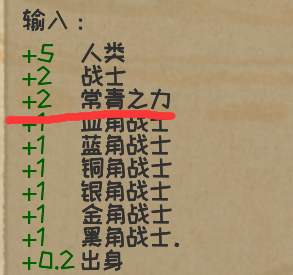 输入：
+5 人类
+2 战士
+2 常青之力
+1 血角战士
+1 蓝角战士
+1 铜角战士
+1 银角战士
+1 金角战士
+1 黑角战士.
+0.2 出身